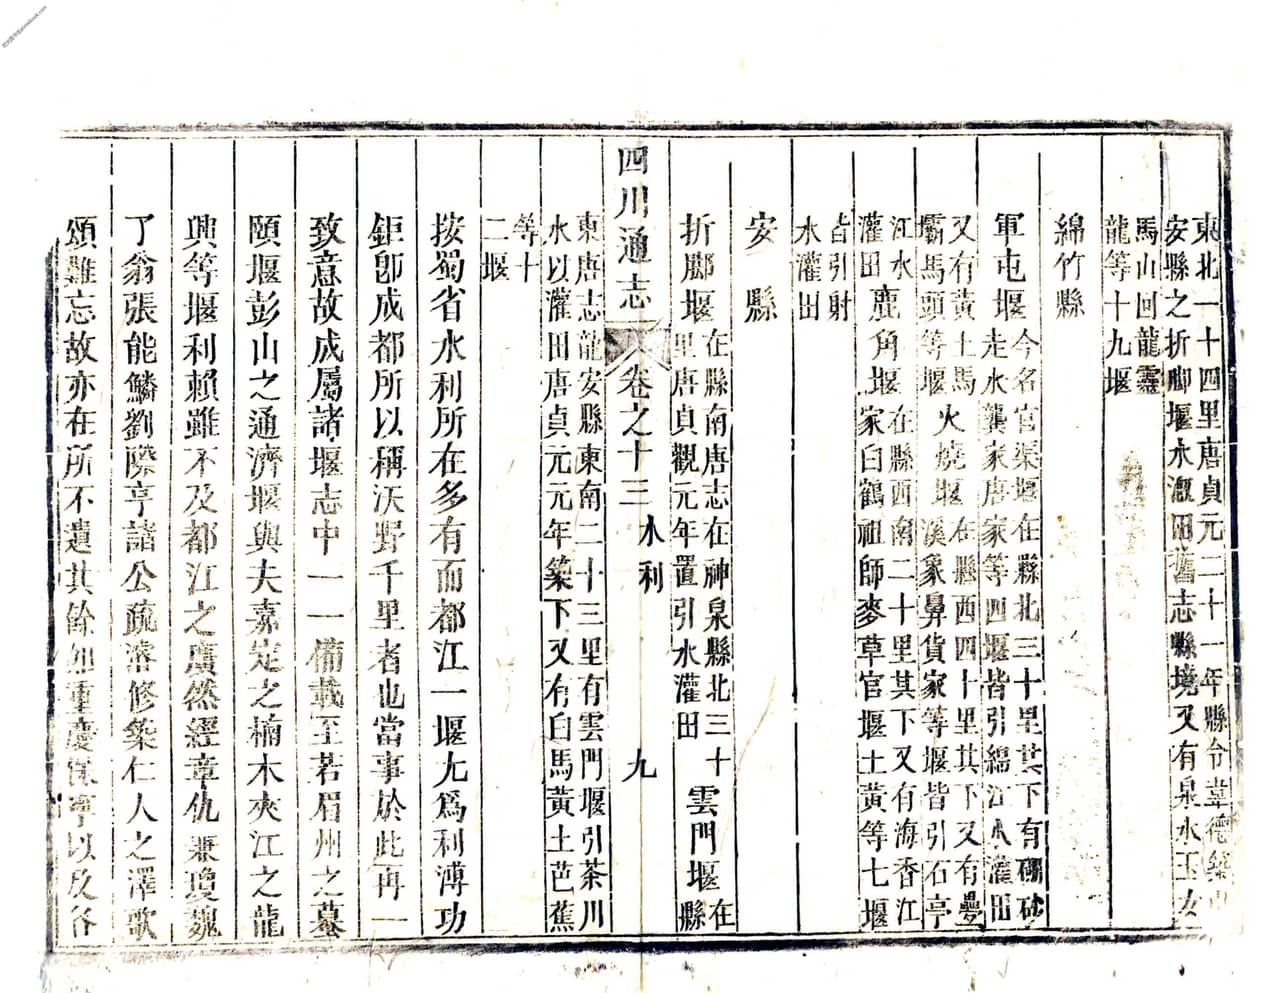 東北一十四里唐貞元二十一年縣令韋德築
安縣之折腳堰水溉田舊志縣境又有泉水玉女
馬山回龍靈
龍等十九堰
綿竹縣
軍屯堰今名官渠堰在縣北三十里其下有硼砂
走水龔家唐家等四堰皆引綿江水灌田
又有黃土馬
壩馬頭等堰
火燒堰在縣西四十里其下又有疊
溪象鼻貨家等堰皆引石亭
江水
灌田
鹿角堰在縣西南二十里其下又有海香江
家白鶴祖師麥草官堰土黃等七堰
皆引射
水灌田
安縣
折腳堰在縣南唐志在神泉縣北三十
里唐貞觀元年置引水灌田
雲門堰在
縣
四川通志
卷之十三
水利
九
東唐志龍安縣東南二十三里有雲門堰引茶川
水以灌田唐貞元元年築下又有白馬黃土芭蕉
等十
二堰
按蜀省水利所在多有而都江一堰尤爲利溥功
鉅卽成都所以稱沃野千里者也當事於此再一
致意故成屬諸堰志中一一備載至若眉州之蟇
頤堰彭山之通濟堰與夫嘉定之楠木夾江之龍
興等堰利賴雖不及都江之廣然經章仇兼瓊魏
了翁張能鱗劉際亨諸公疏濬修築仁人之澤歌
頌難忘故亦在所不遺其餘如重慶保寧以及各